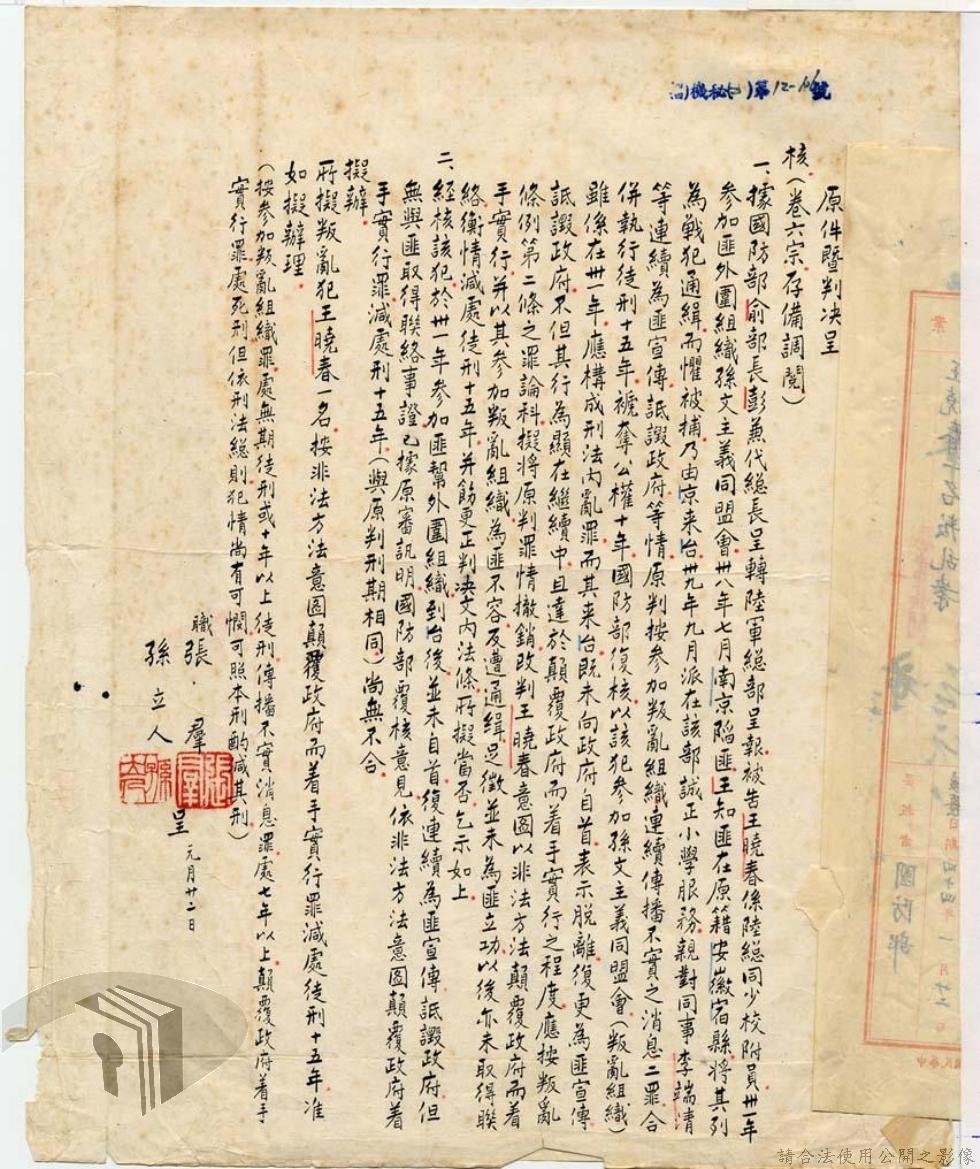 機秘()第12-號
原件暨判决呈
核(卷六宗存備調閱)
一、據國防部俞部長彭兼代總長呈轉陸軍總部呈報被告王曉春係陸總同少校附員卅一年
參加匪外圍組織孫文主義同盟會卅八年七月南京陷匪王知匪在原籍安徽宿縣將其列
為戰犯通緝而懼被捕乃由京来台卅九年九月派在該部誠正小學服務親對同事李端清
等連續為匪宣傳詆譭政府等情原判按參加叛亂組織連續傳播不實之消息二罪合
併執行徒刑十五年褫奪公權十年國防部復核以該犯參加孫文主義同盟會(叛亂組織)
雖係在卅一年應構成刑法內亂罪而其来台既未向政府自首表示脱離復更為匪宣傳
詆譭政府不但其行為顯在繼續中且達於顛覆政府而着手實行之程度應按叛亂
條例第二條之罪論科擬將原判罪情撤銷改判王曉春意图以非法方法顛覆政府而着
手實行并以其參加叛亂組織為匪不容及遭通緝足徵並未為匪立功以後亦未取得聯
絡衡情減處徒刑十五年并飭更正判决文内法條所擬當否乞示如上
二、經核該犯於卅一年參加匪幫外圍組織到台後並未自首復連續為匪宣傳詆譭政府但
無與匪取得聯絡事證已據原審訊明國防部覆核意見依非法方法意图顛覆政府着
手實行罪減處刑十五年(與原判刑期相同)尚無不合
擬辦
所擬叛亂犯王曉春一名按非法方法意图顛覆政府而着手實行罪減處徒刑十五年准
如擬辦理
(按參加叛亂組織罪處無期徒刑或十年以上徒刑傳播不實消息罪處七年以上顛覆政府着手
實行罪處死刑但依刑法總則犯情尚有可憫可照本刑酌減其刑)
職張 羣
孫立人 呈 元月廿二日
國防部
四十四年一月十三日
請合法使用公開之影像